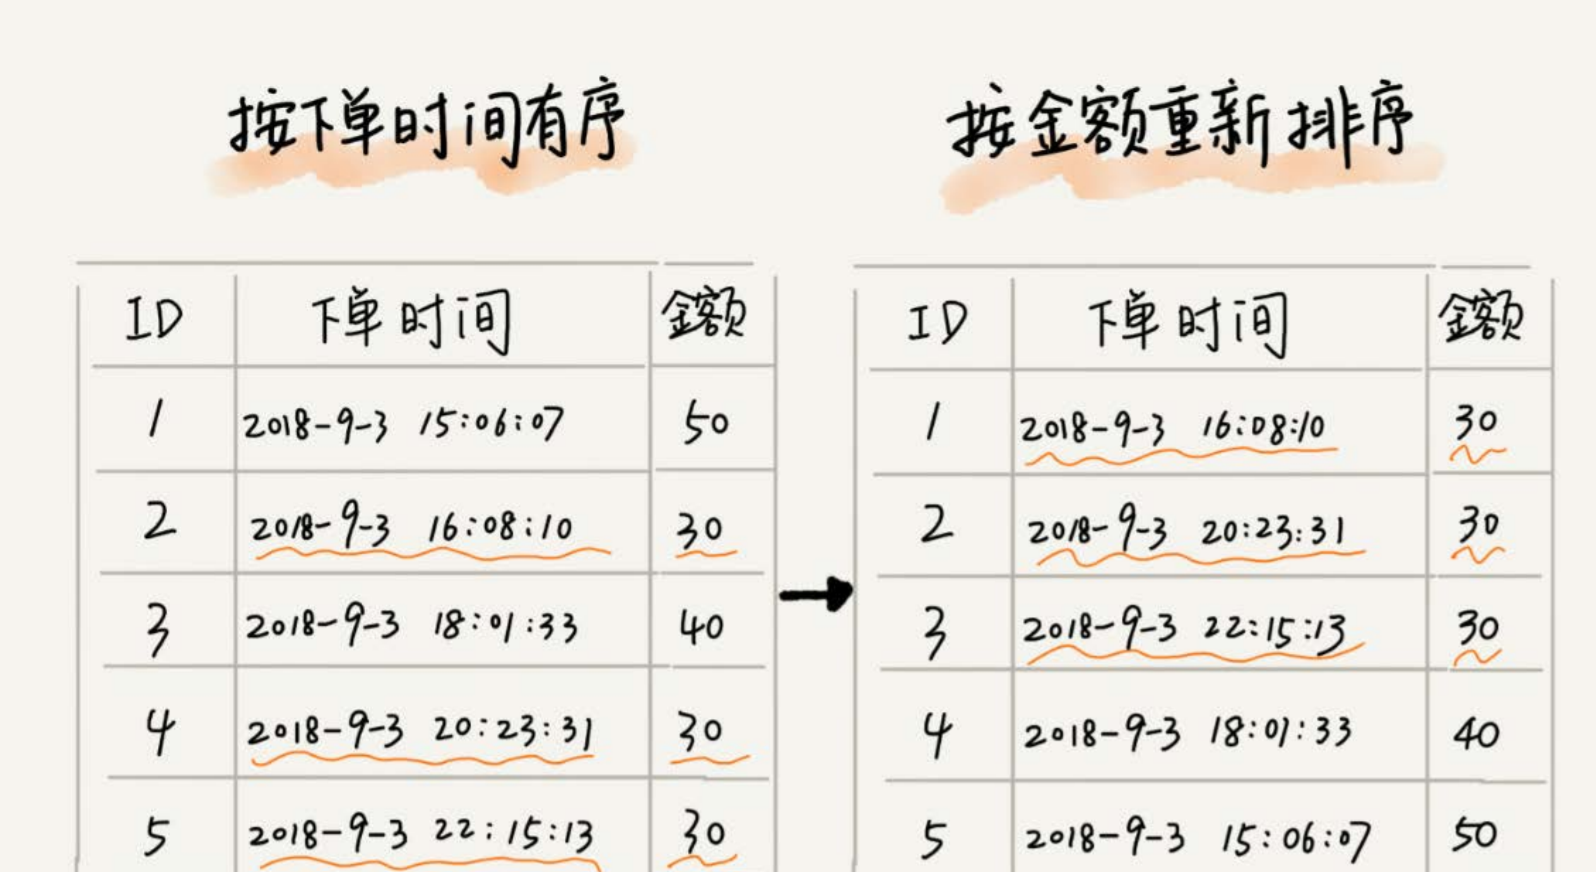 按下单时间有序
ID 下单时间 金额
1 2018-9-3 15:06:07 50
2 2018-9-3 16:08:10 30
3 2018-9-3 18:01:33 40
4 2018-9-3 20:23:31 30
5 2018-9-3 22:15:13 30
按金额重新排序
ID 下单时间 金额
1 2018-9-3 16:08:10 30
2 2018-9-3 20:23:31 30
3 2018-9-3 22:15:13 30
4 2018-9-3 18:01:33 40
5 2018-9-3 15:06:07 50